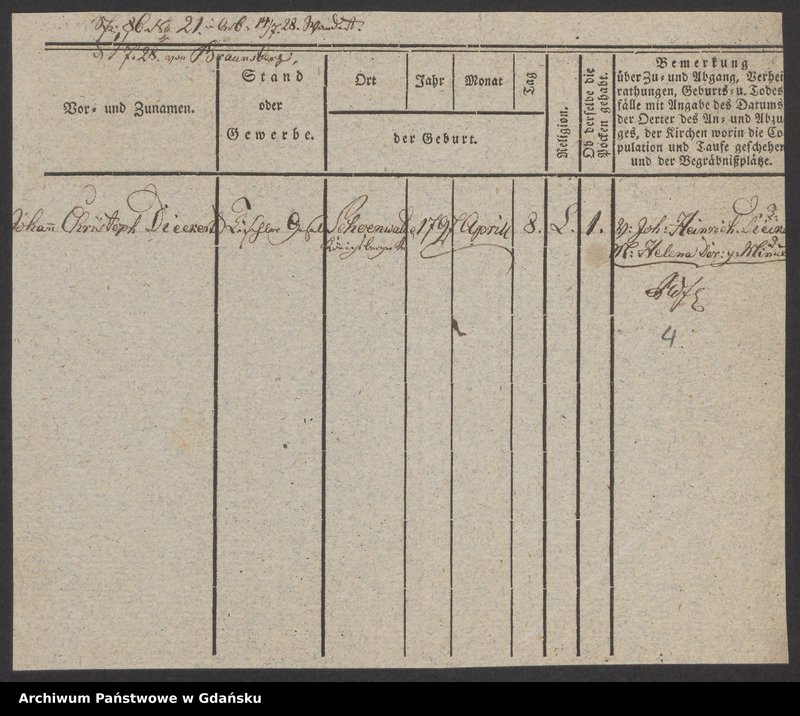 86 No 21. 14/7. 28.
7. 28. von Braunsberg,
Vor- und Zunamen.
Stand
oder
Gewerbe.
Ort
Jahr
Monat
Tag
der Geburt.
Religion.
Ob derselbe die
Pocken gehabt.
Bemerkung
über Zu- und Abgang, Verhei
rathungen, Geburts- u. Todes
fälle mit Angabe des Datums
der Oerter des An- und Abzu
ges, der Kirchen worin die Co
pulation und Taufe geschehen
und der Begräbnißplätze.
Christoph Dieckert Tischler Gesel Schoenwalde 1797 April 8. L. 1. v: Joh: Heinrich Dieck
Königsberg M: Helena Dor:
4
Archiwum Państwowe w Gdańsku